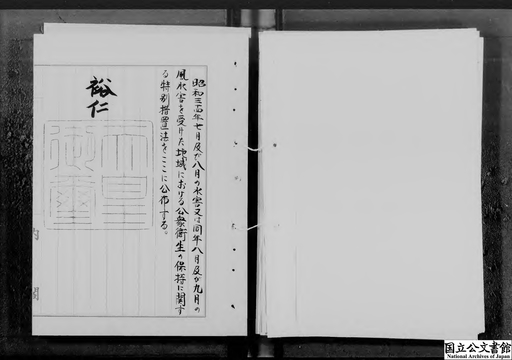 昭和三十四年七月及び八月の水害又は同年八月及び九月の
風水害を受けた地域における公衆衛生の保持に関す
る特別措置法をここに公布する。
裕仁
天皇
御璽
内
閣
国立公文書館
National Archives of Japan